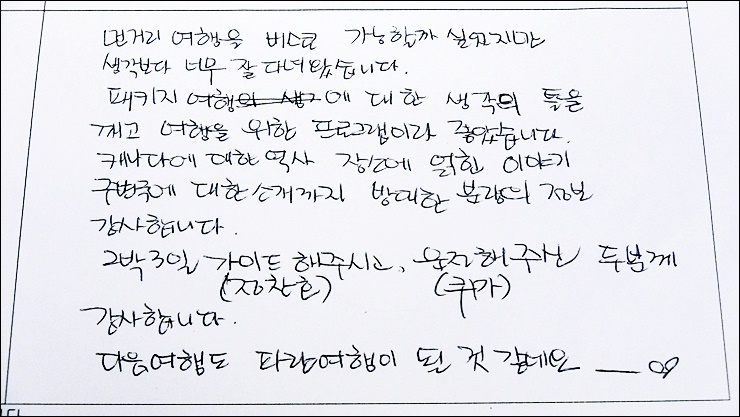 먼거리 여행을 버스로 가능할까 싶었지만
생각보다 너무 잘 다녀왔습니다.
패키지 여행에 대한 생각의 틀을
깨고 여행을 위한 프로그램이라 좋았습니다.
캐나다에 대한 역사 장소에 얽힌 이야기
구변주에 대한 소개까지 방대한 분량의 정보
감사합니다.
2박3일 가이드 해주시고, 운전해주신 두분께
(정찬호) (쿠가)
감사합니다.
다음여행도 파란여행이 될 것 같네요